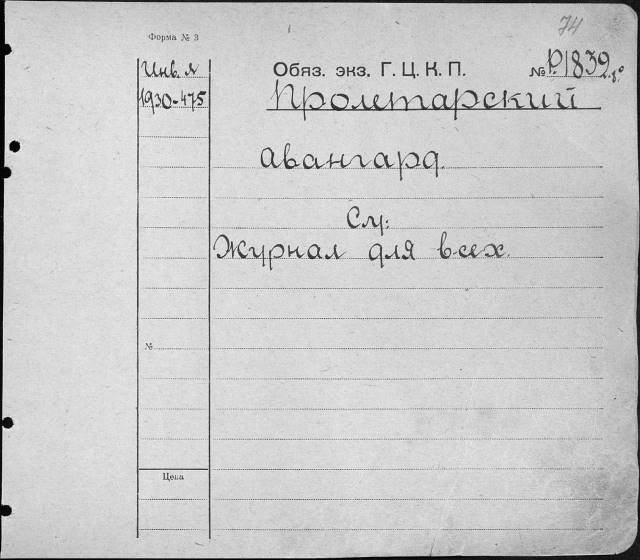 74
Форма № 3
Инв. №
1930-475
Обяз. экз. Г. Ц. К. П.
№ P1839
Пролетарский
авангард.
См:
Журнал для всех.
№
Цена